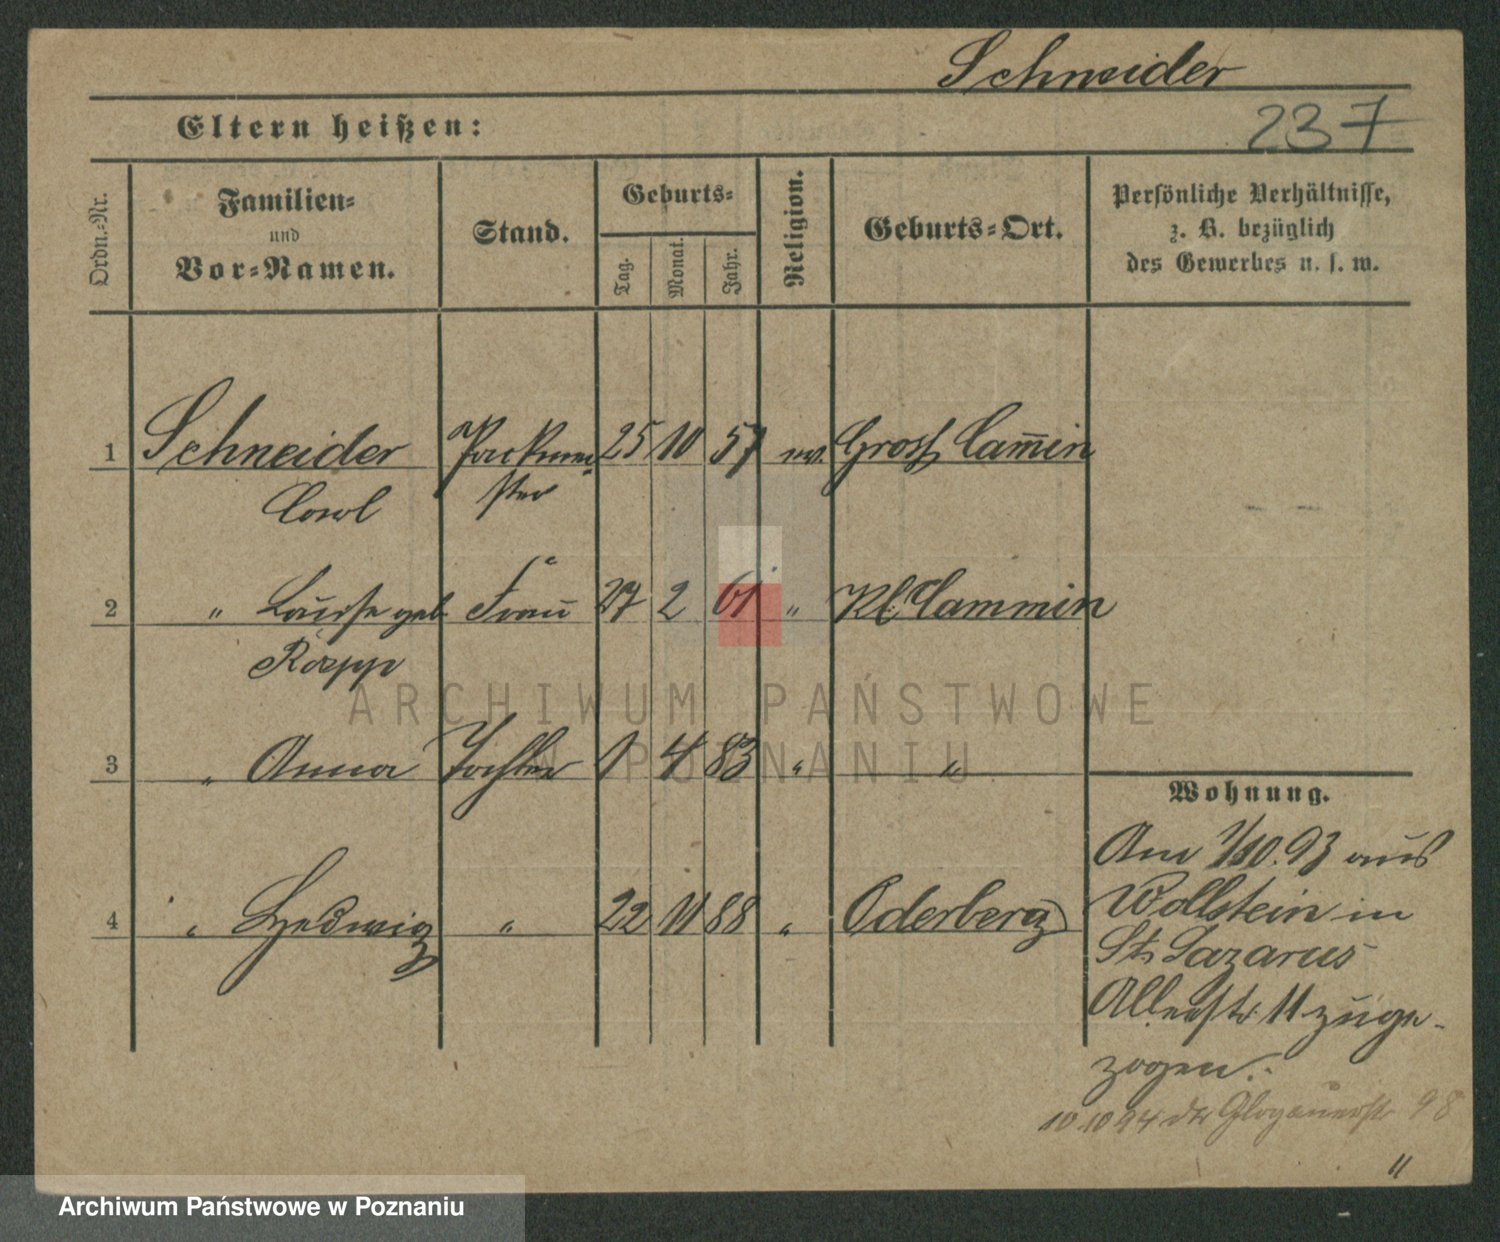 Schneider
237
Eltern heißen:
Ordn.-Nr.
Familien-
und
Vor-Namen.
Stand.
Geburts-
Tag.
Monat.
Jahr.
Religion.
Geburts-Ort.
Persönliche Verhältnisse,
z. B. bezüglich
des Gewerbes u. s. w.
1 Schneider Packmei- 25 10 57 ev. Gross Cam̅in
Carl ster
2 " Louise geb. Frau 27 2 61 " Kl. Cammin
Rapp
3 " Anna Tochter 1 4 83 " "
4 " Hedwig " 22 11 88 " Oderberg
Wohnung.
Am 1/10. 93 aus
Wollstein in
St. Lazarus
Allerstr. 11 zuge-
zogen.
10 10 94 Glogauerstr 98
11
ARCHIWUM PAŃSTWOWE
W POZNANIU
Archiwum Państwowe w Poznaniu